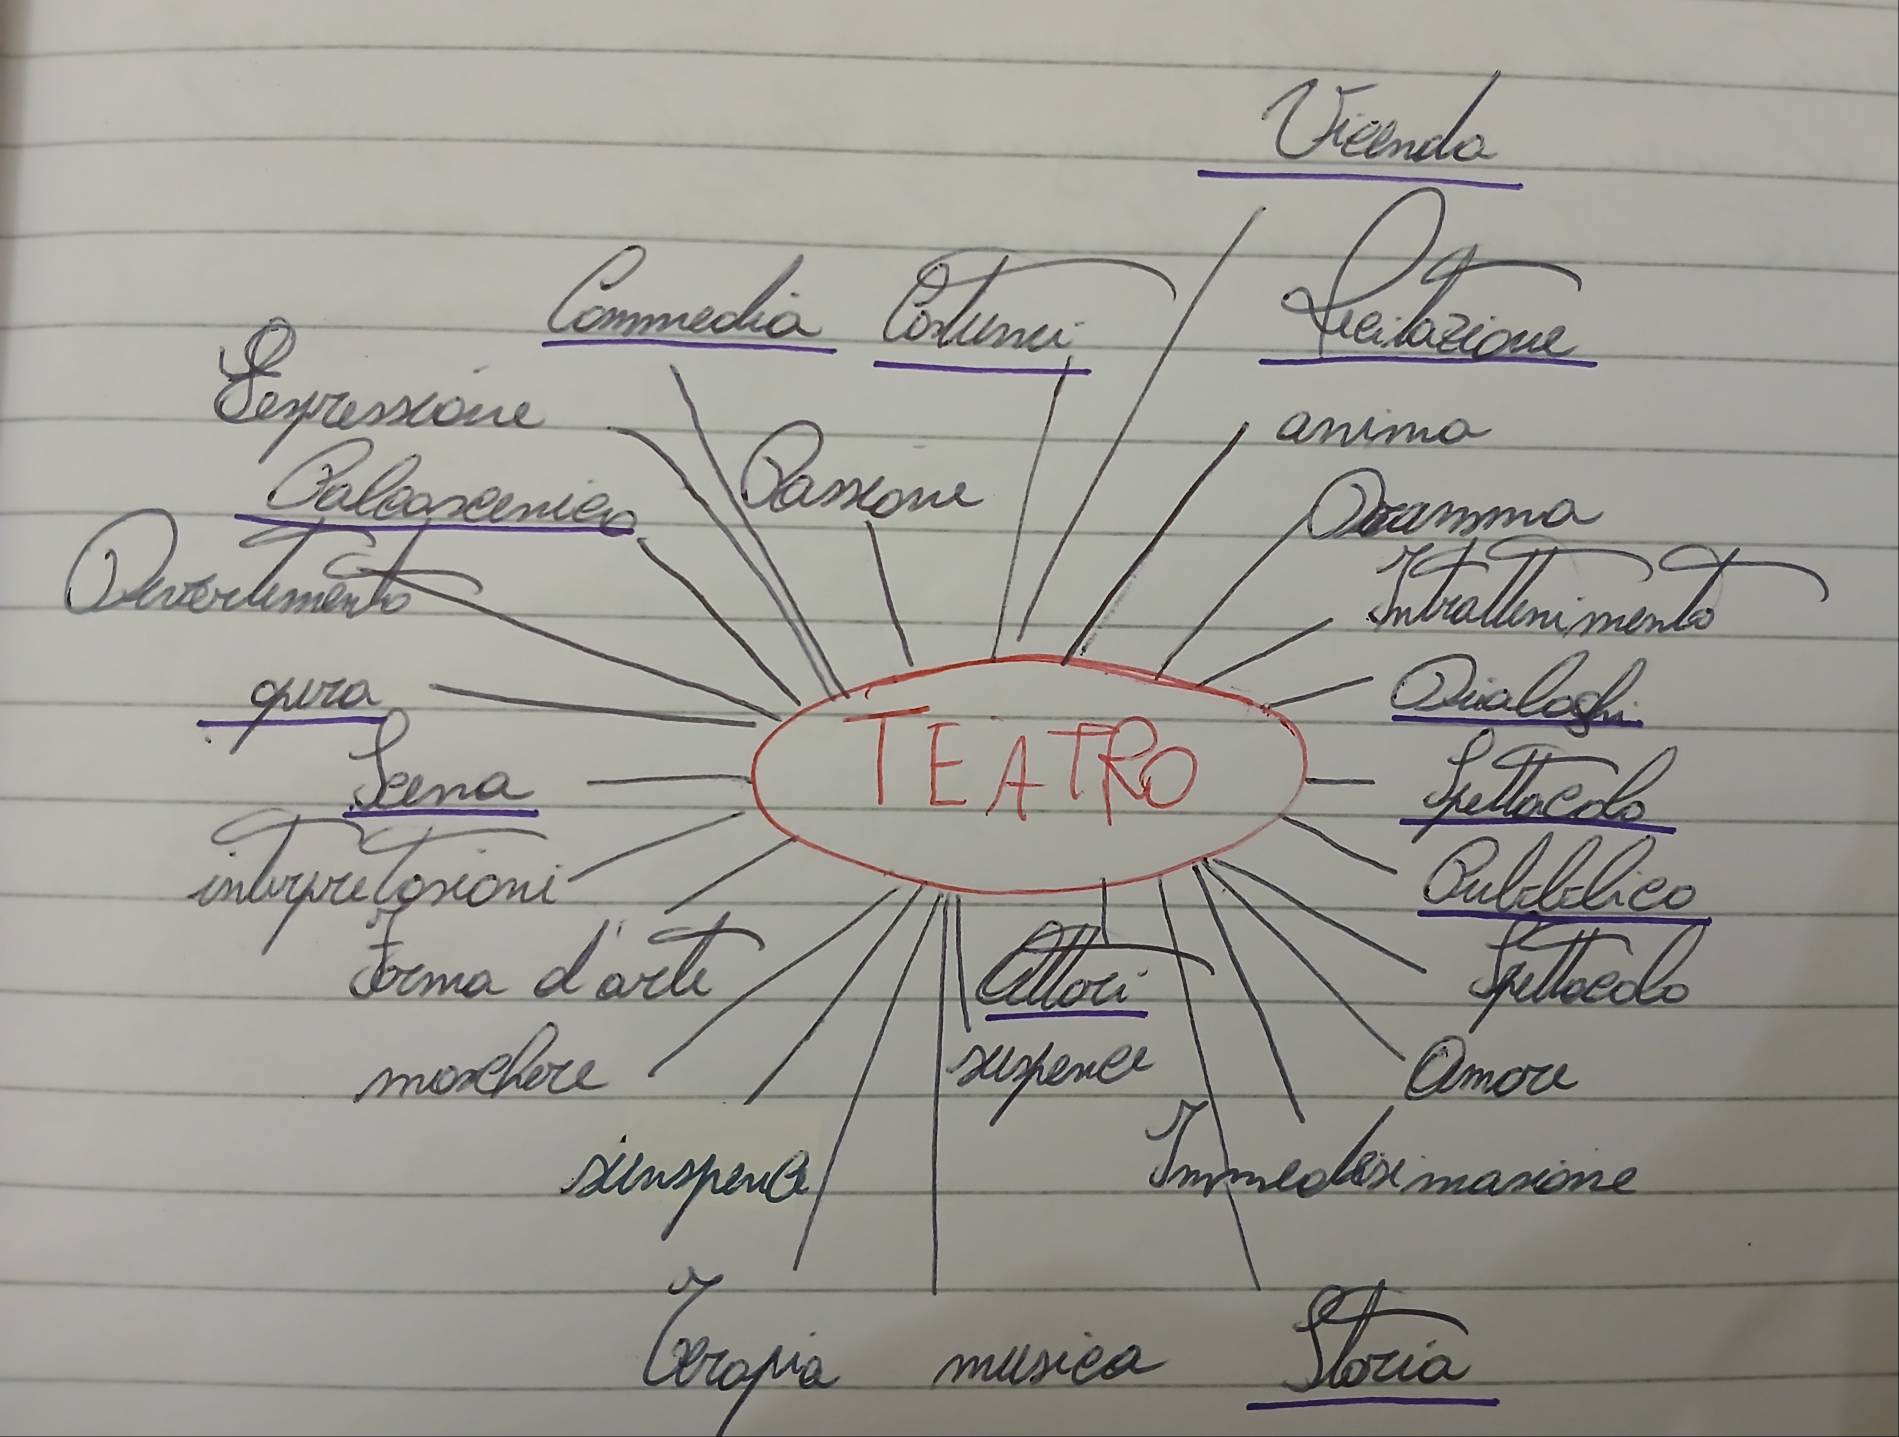 Vicenda
Commedia Costumi Recitazione
Espressione
anima
Palcoscenico Passione Dramma
Divertimento
Intrattenimento
opera
Dialoghi
TEATRO
Scena
Spettacolo
interpretazioni
Pubblico
Forma d'arte
Attori
Spettacolo
maschere
suspence
Amore
sunspence
Immedesimazione
Terapia musica Storia